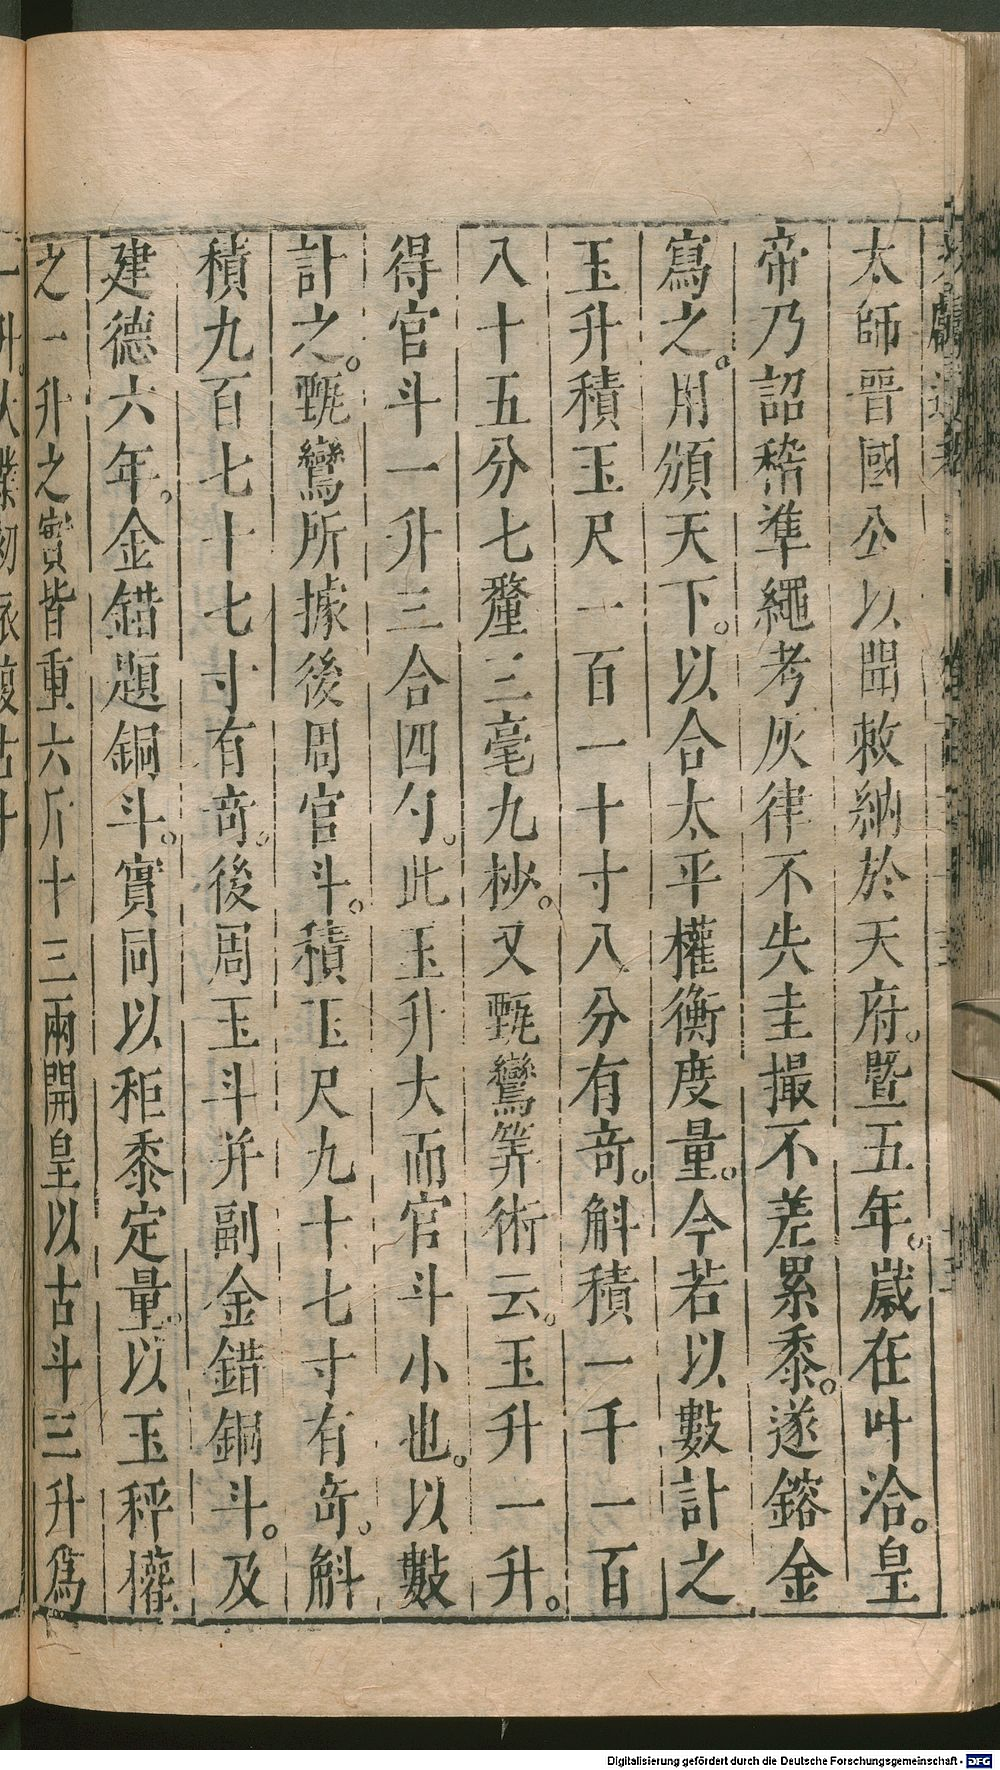 太師晉國公以聞敕納於天府。曁五年。歲在叶洽。皇
帝乃詔稽準繩考灰律不失圭撮不差累黍。遂鎔金
寫之。用頒天下。以合太平權衡度量。今若以數計之
玉升積玉尺一百一十寸八分有奇。斛積一千一百
八十五分七釐三毫九秒。又甄鸞筭術云。玉升一升。
得官斗一升三合四勺。此玉升大而官斗小也。以數
計之。甄鸞所據後周官斗。積玉尺九十七寸有奇。斛
積九百七十七寸有奇。後周玉斗并副金錯銅斗。及
建德六年。金錯題銅斗。實同以秬黍定量。以玉秤權
之一升之實皆重六斤十三兩開皇以古斗三升爲
一升。大業初依復古斗
Digitalisierung gefördert durch die Deutsche Forschungsgemeinschaft - DFG